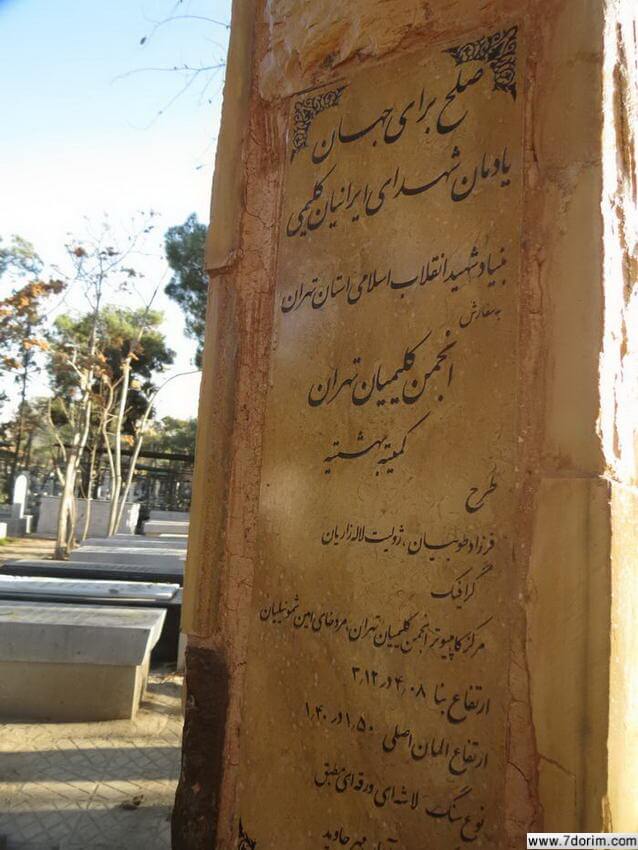 صلح برای جهان
یادمان شهدای ایرانیان کلیمی
بنیاد شهید انقلاب اسلامی استان تهران
به سفارش
انجمن کلیمیان تهران
کمیته بهشتیه
طرح
فرزاد طوبیان، ژولیت لاله زاریان
گرافیک
مرکز کامپیوتر انجمن کلیمیان تهران، مردخای امین شموئیلیان
ارتفاع بنا ۴٫۰۸ در ۳٫۱۲
ارتفاع المان اصلی ۱٫۵۰ در ۱٫۴۰
نوع سنگ لاشه ای ورقه ای مطبق
www.7dorim.com